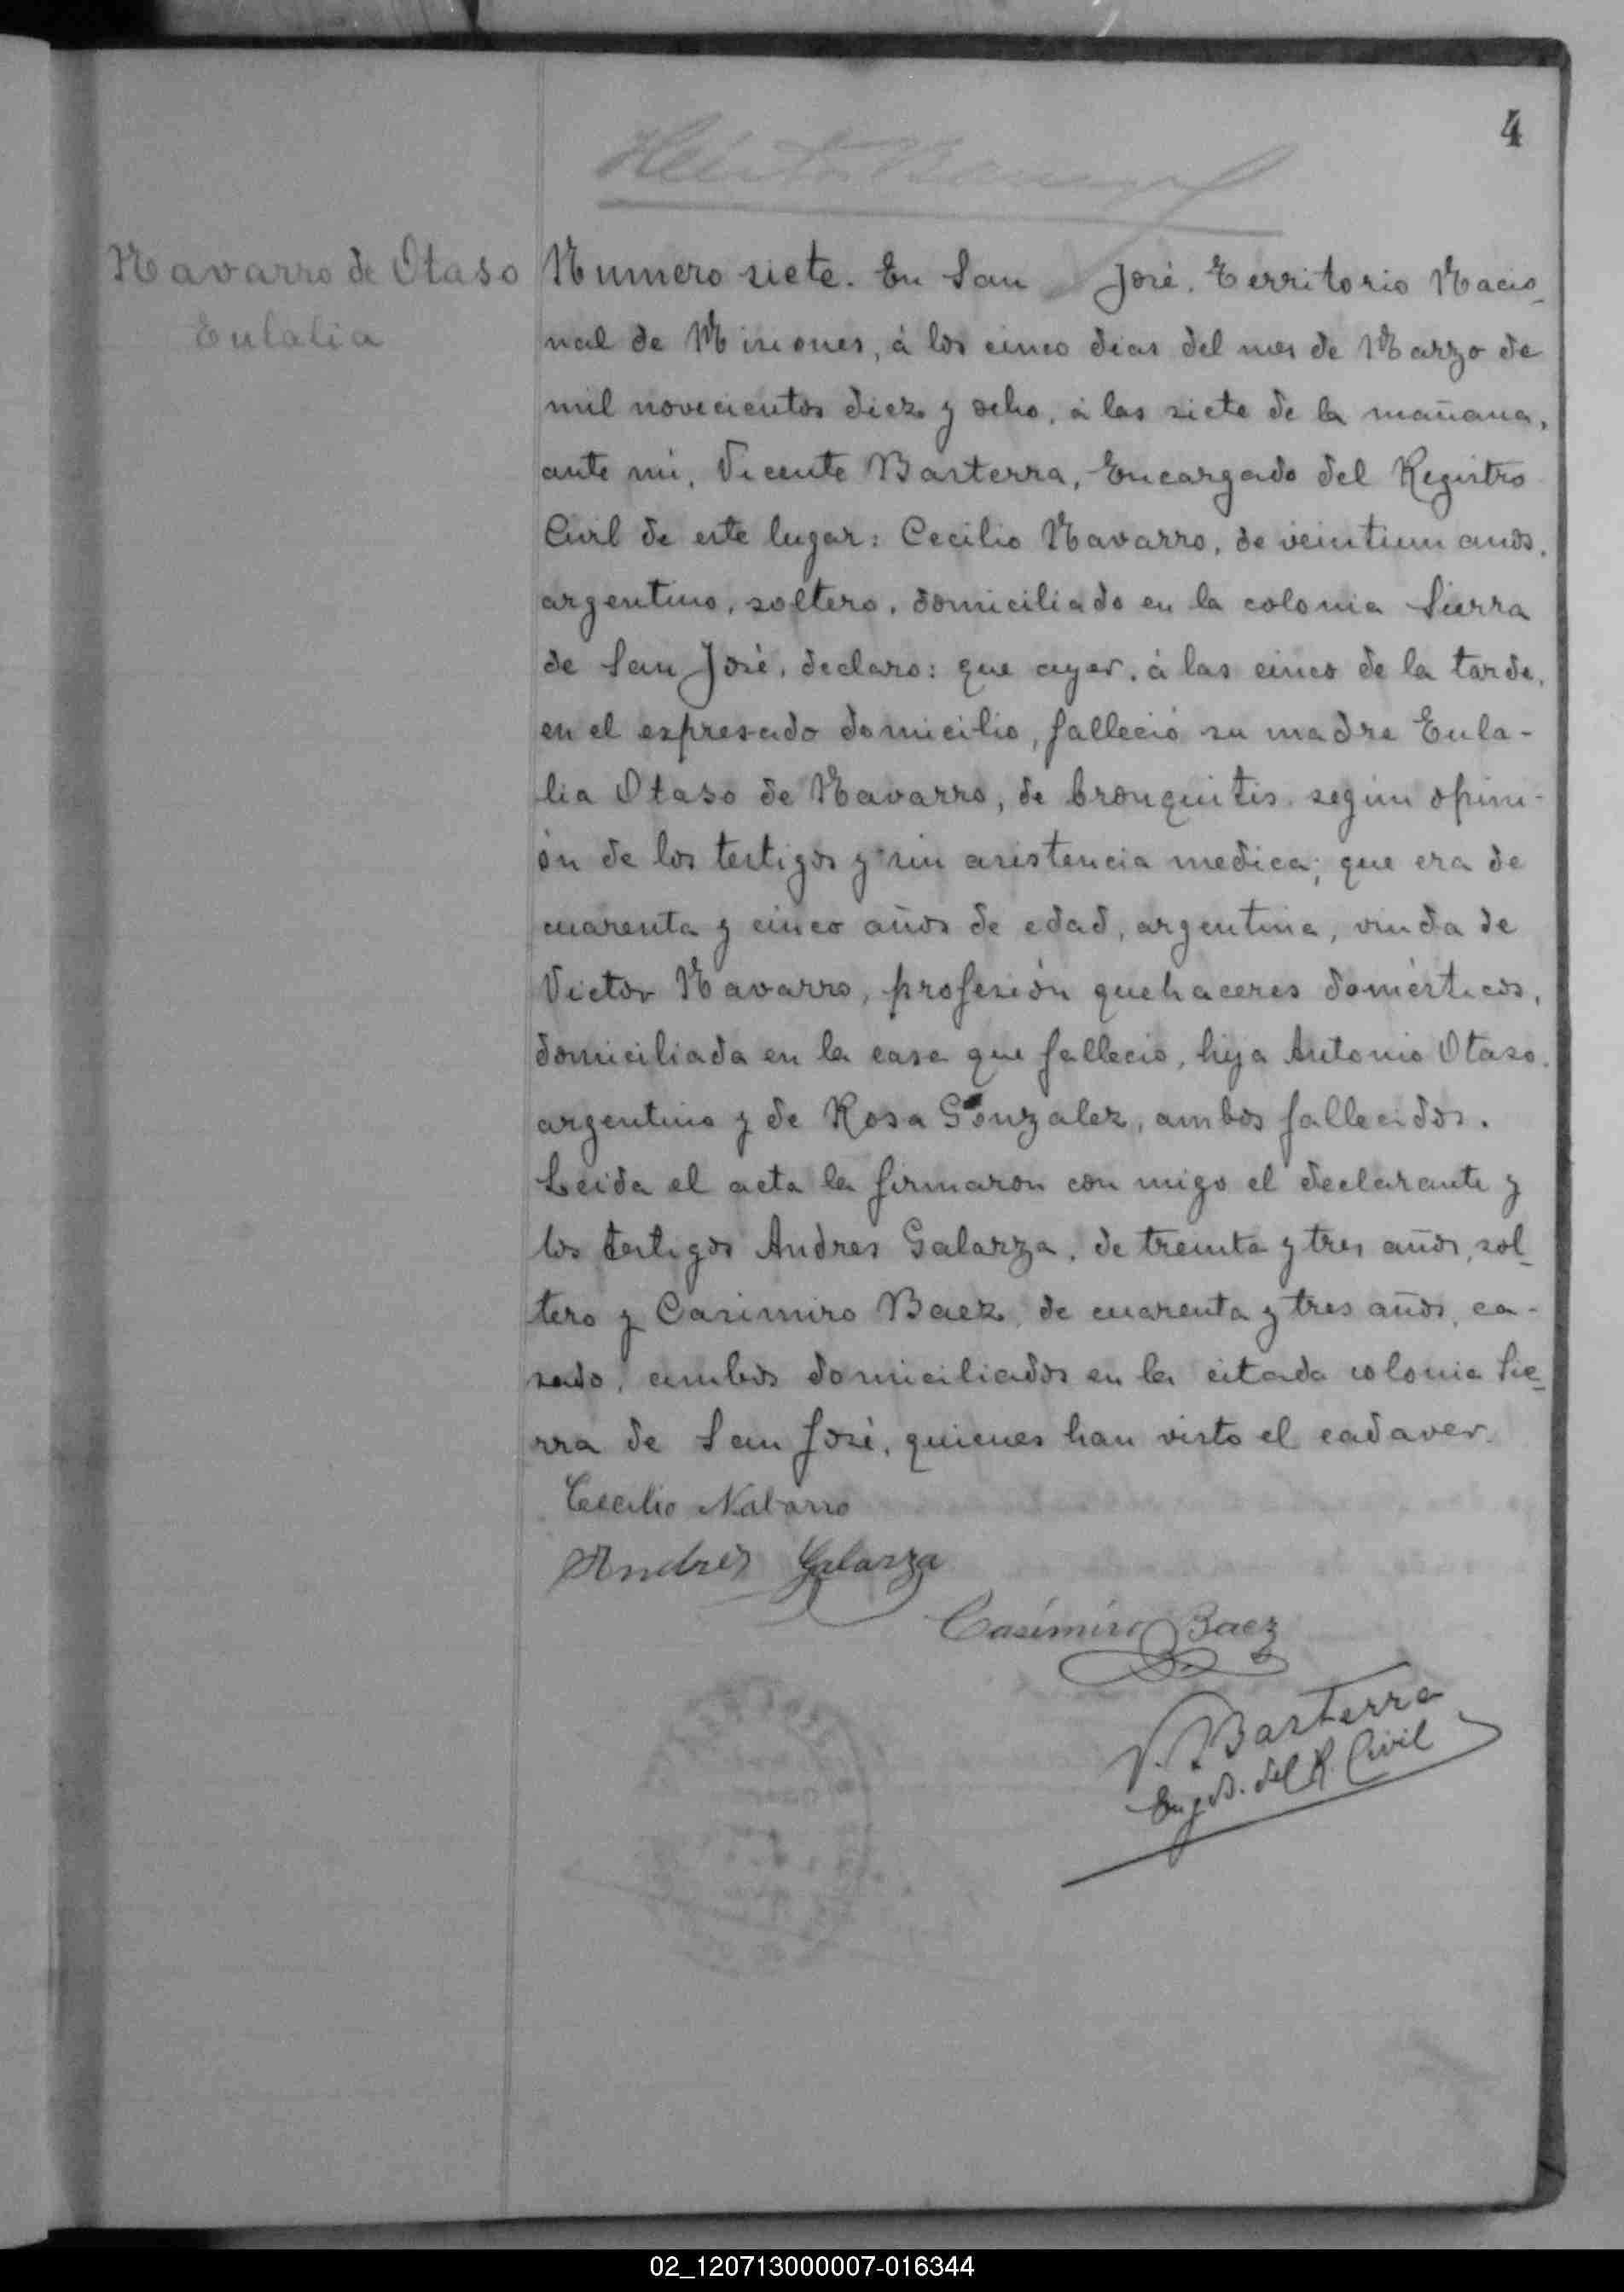 4
Navarro de Otaso
Eulalia
Numero siete. En San José, Territorio Nacio-
nal de Misiones, á los cinco dias del mes de Marzo de
mil novecientos diez y ocho, á las siete de la mañana,
ante mi, Vicente Basterra, Encargado del Registro
Civil de este lugar: Cecilio Navarro, de veintiun anos,
argentino, soltero, domiciliado en la colonia Sierra
de San José, declaro: que ayer, á las cinco de la tarde,
en el expresado domicilio, falleció su madre Eula-
lia Otaso de Navarro, de bronquitis según opini-
ón de los testigos y sin asistencia medica; que era de
cuarenta y cinco años de edad, argentina, viuda de
Victor Navarro, profesión quehaceres domésticos,
domiciliada en la casa que fallecio, hija Antonio Otaso,
argentino y de Rosa Gonzalez, ambos fallecidos.
Leida el acta la firmaron con migo el declarante y
los testigos Andres Galarza, de treinta y tres años, sol-
tero y Casimiro Baez, de cuarenta y tres años, ca-
sado, ambos domiciliados en la citada colonia Sie-
rra de San José, quienes han visto el cadaver.
Cecilio Nabarro
Andres Galarza
Casimiro Baez
V. Basterra
Engdo. del R. Civil
02_120713000007-016344